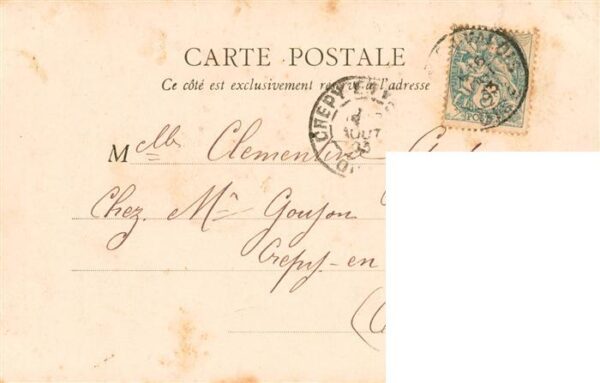 CARTE POSTALE
Ce côté est exclusivement réservé à l'adresse
CREPY
AOUT
Melle Clementine
Chez Mr Goujon
Crepy-en
(